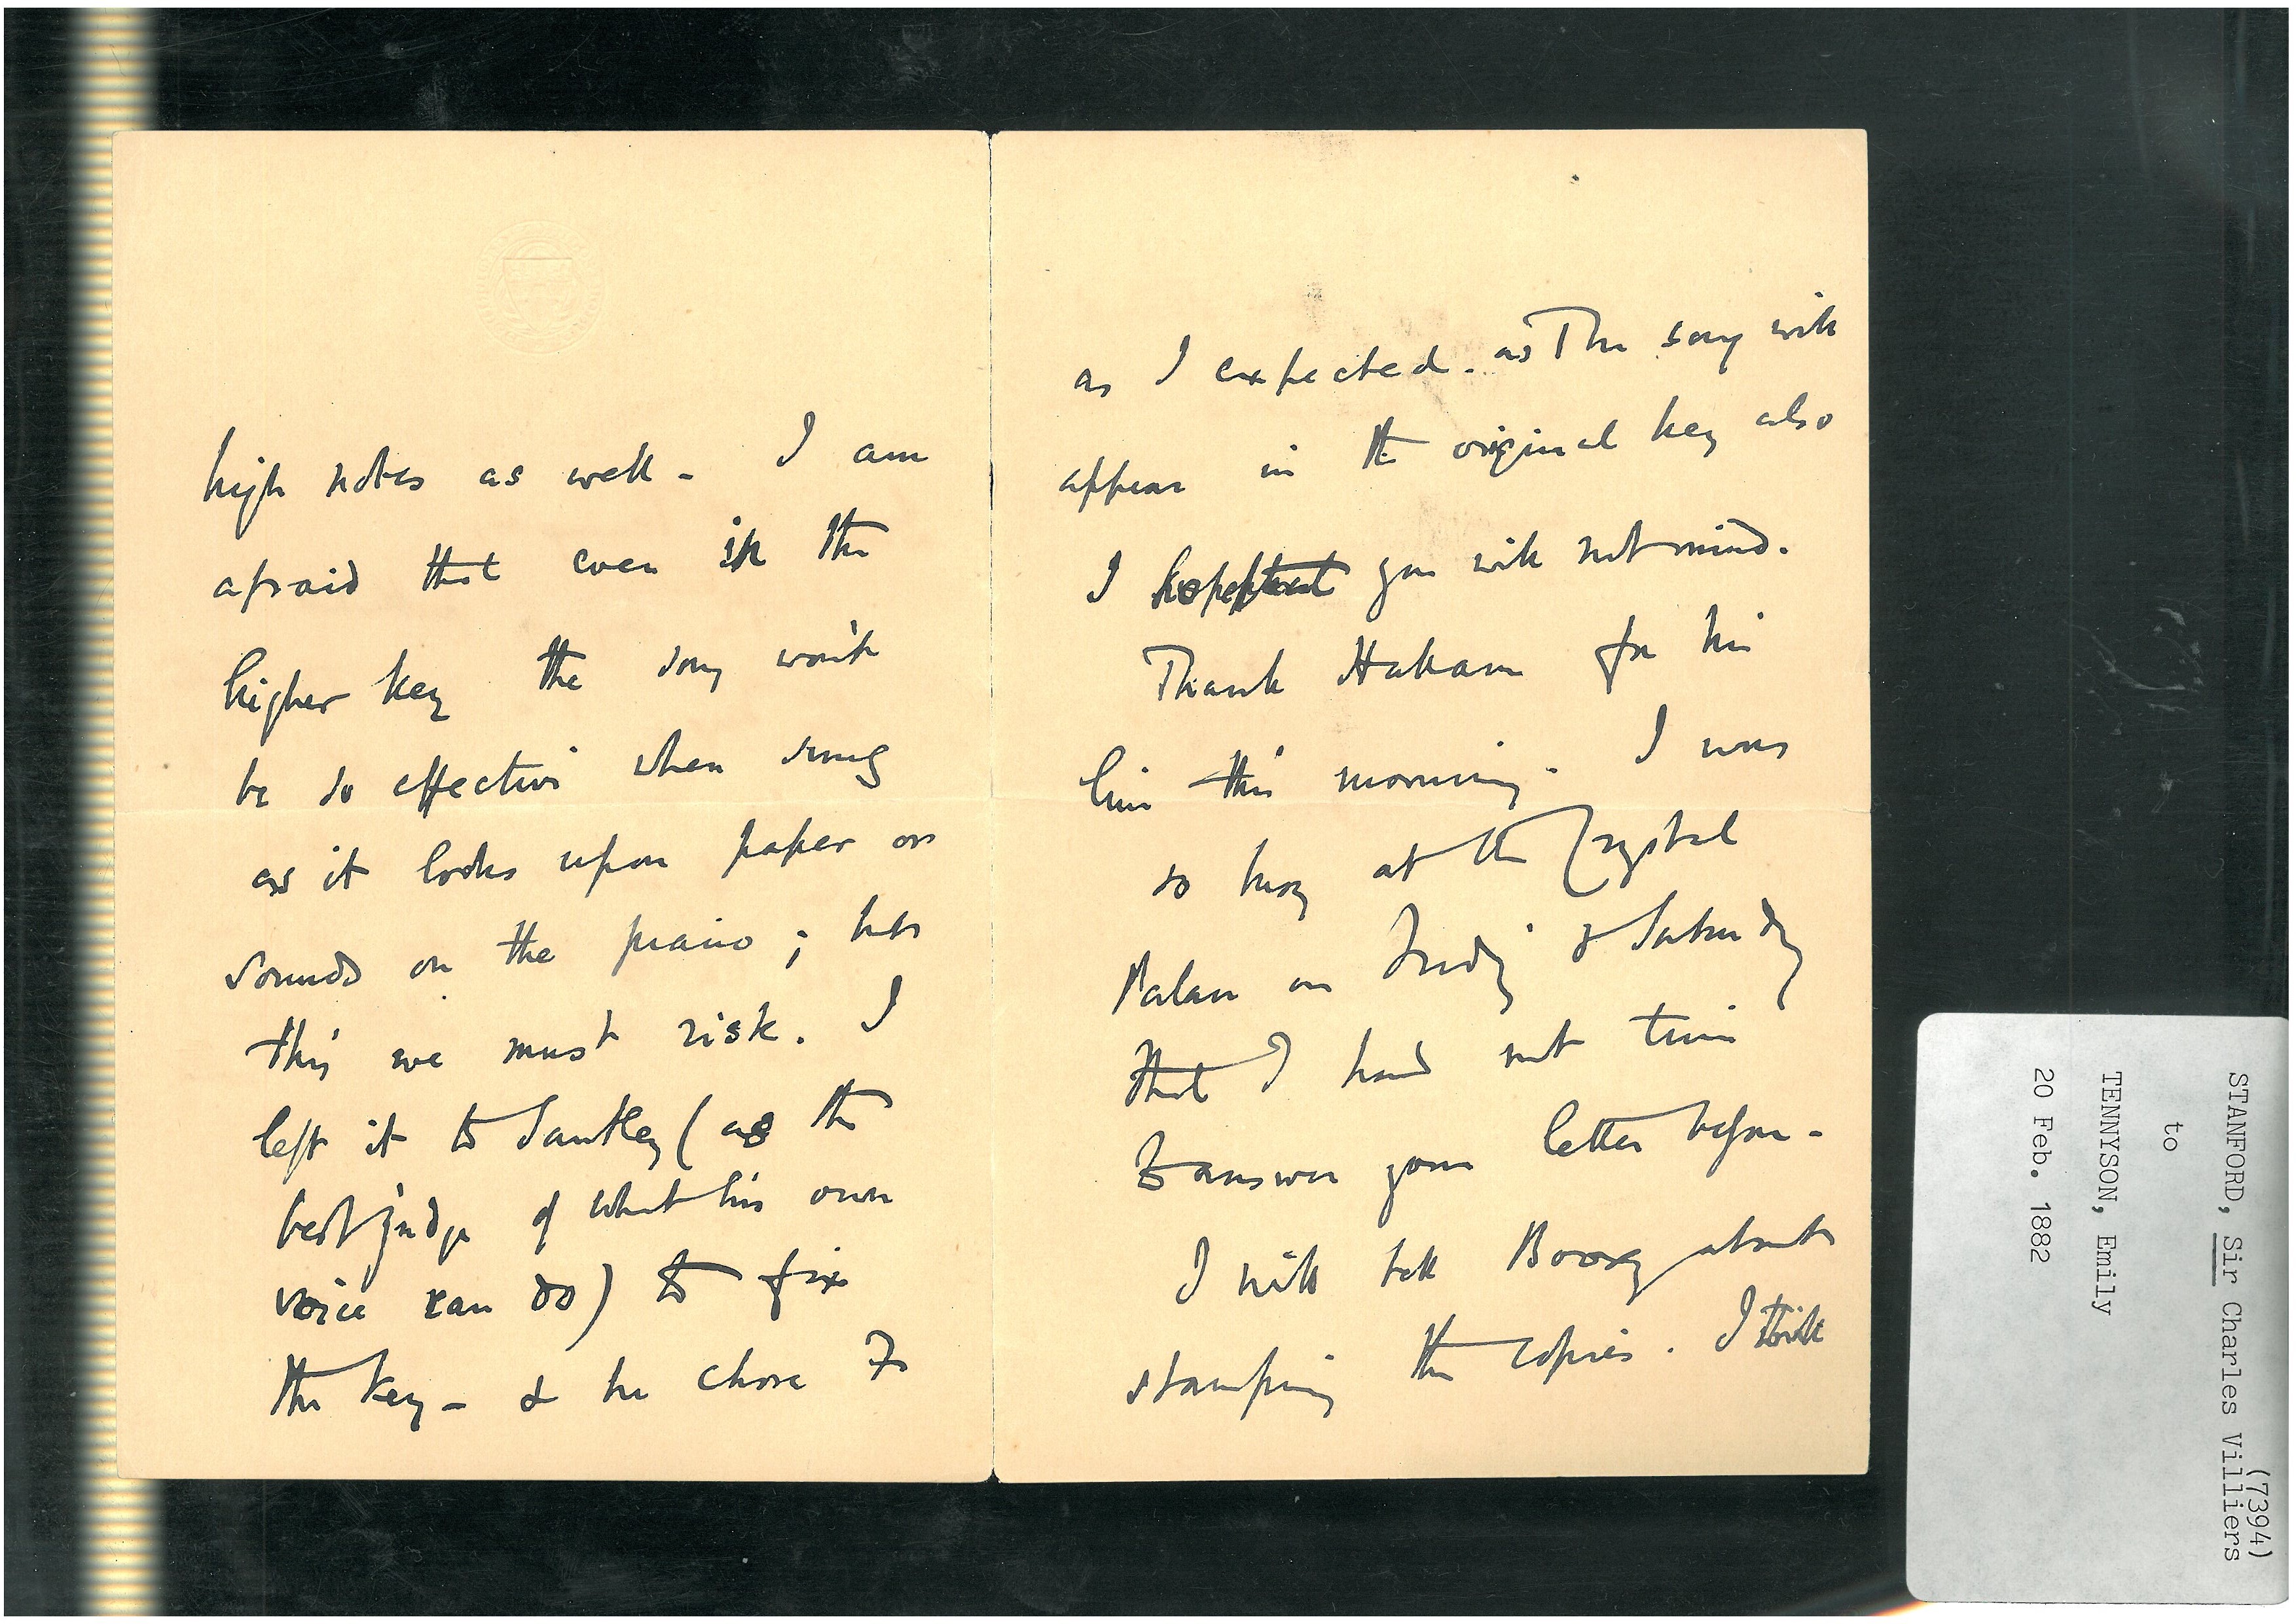 high notes as well - I am
afraid that even in the
higher key the song won't
be so effective when sung
as it looks upon paper or
sounds on the piano; but
this we must risk. I
left it to Santley (as the
best judge of what his own
voice can do) to fix
the key - & he chose F
as I expected. as The song will
appear in the original key also
I hope that you will not mind.
Thank Hallam for his
line this morning. I was
so busy at the Crystal
Palace on Friday & Saturday
that I had not time
to answer your letter before -
I will tell Boosey about
stamping the copies. I think
(7394)
STANFORD, Sir Charles Villiers
to
TENNYSON, Emily
20 Feb. 1882